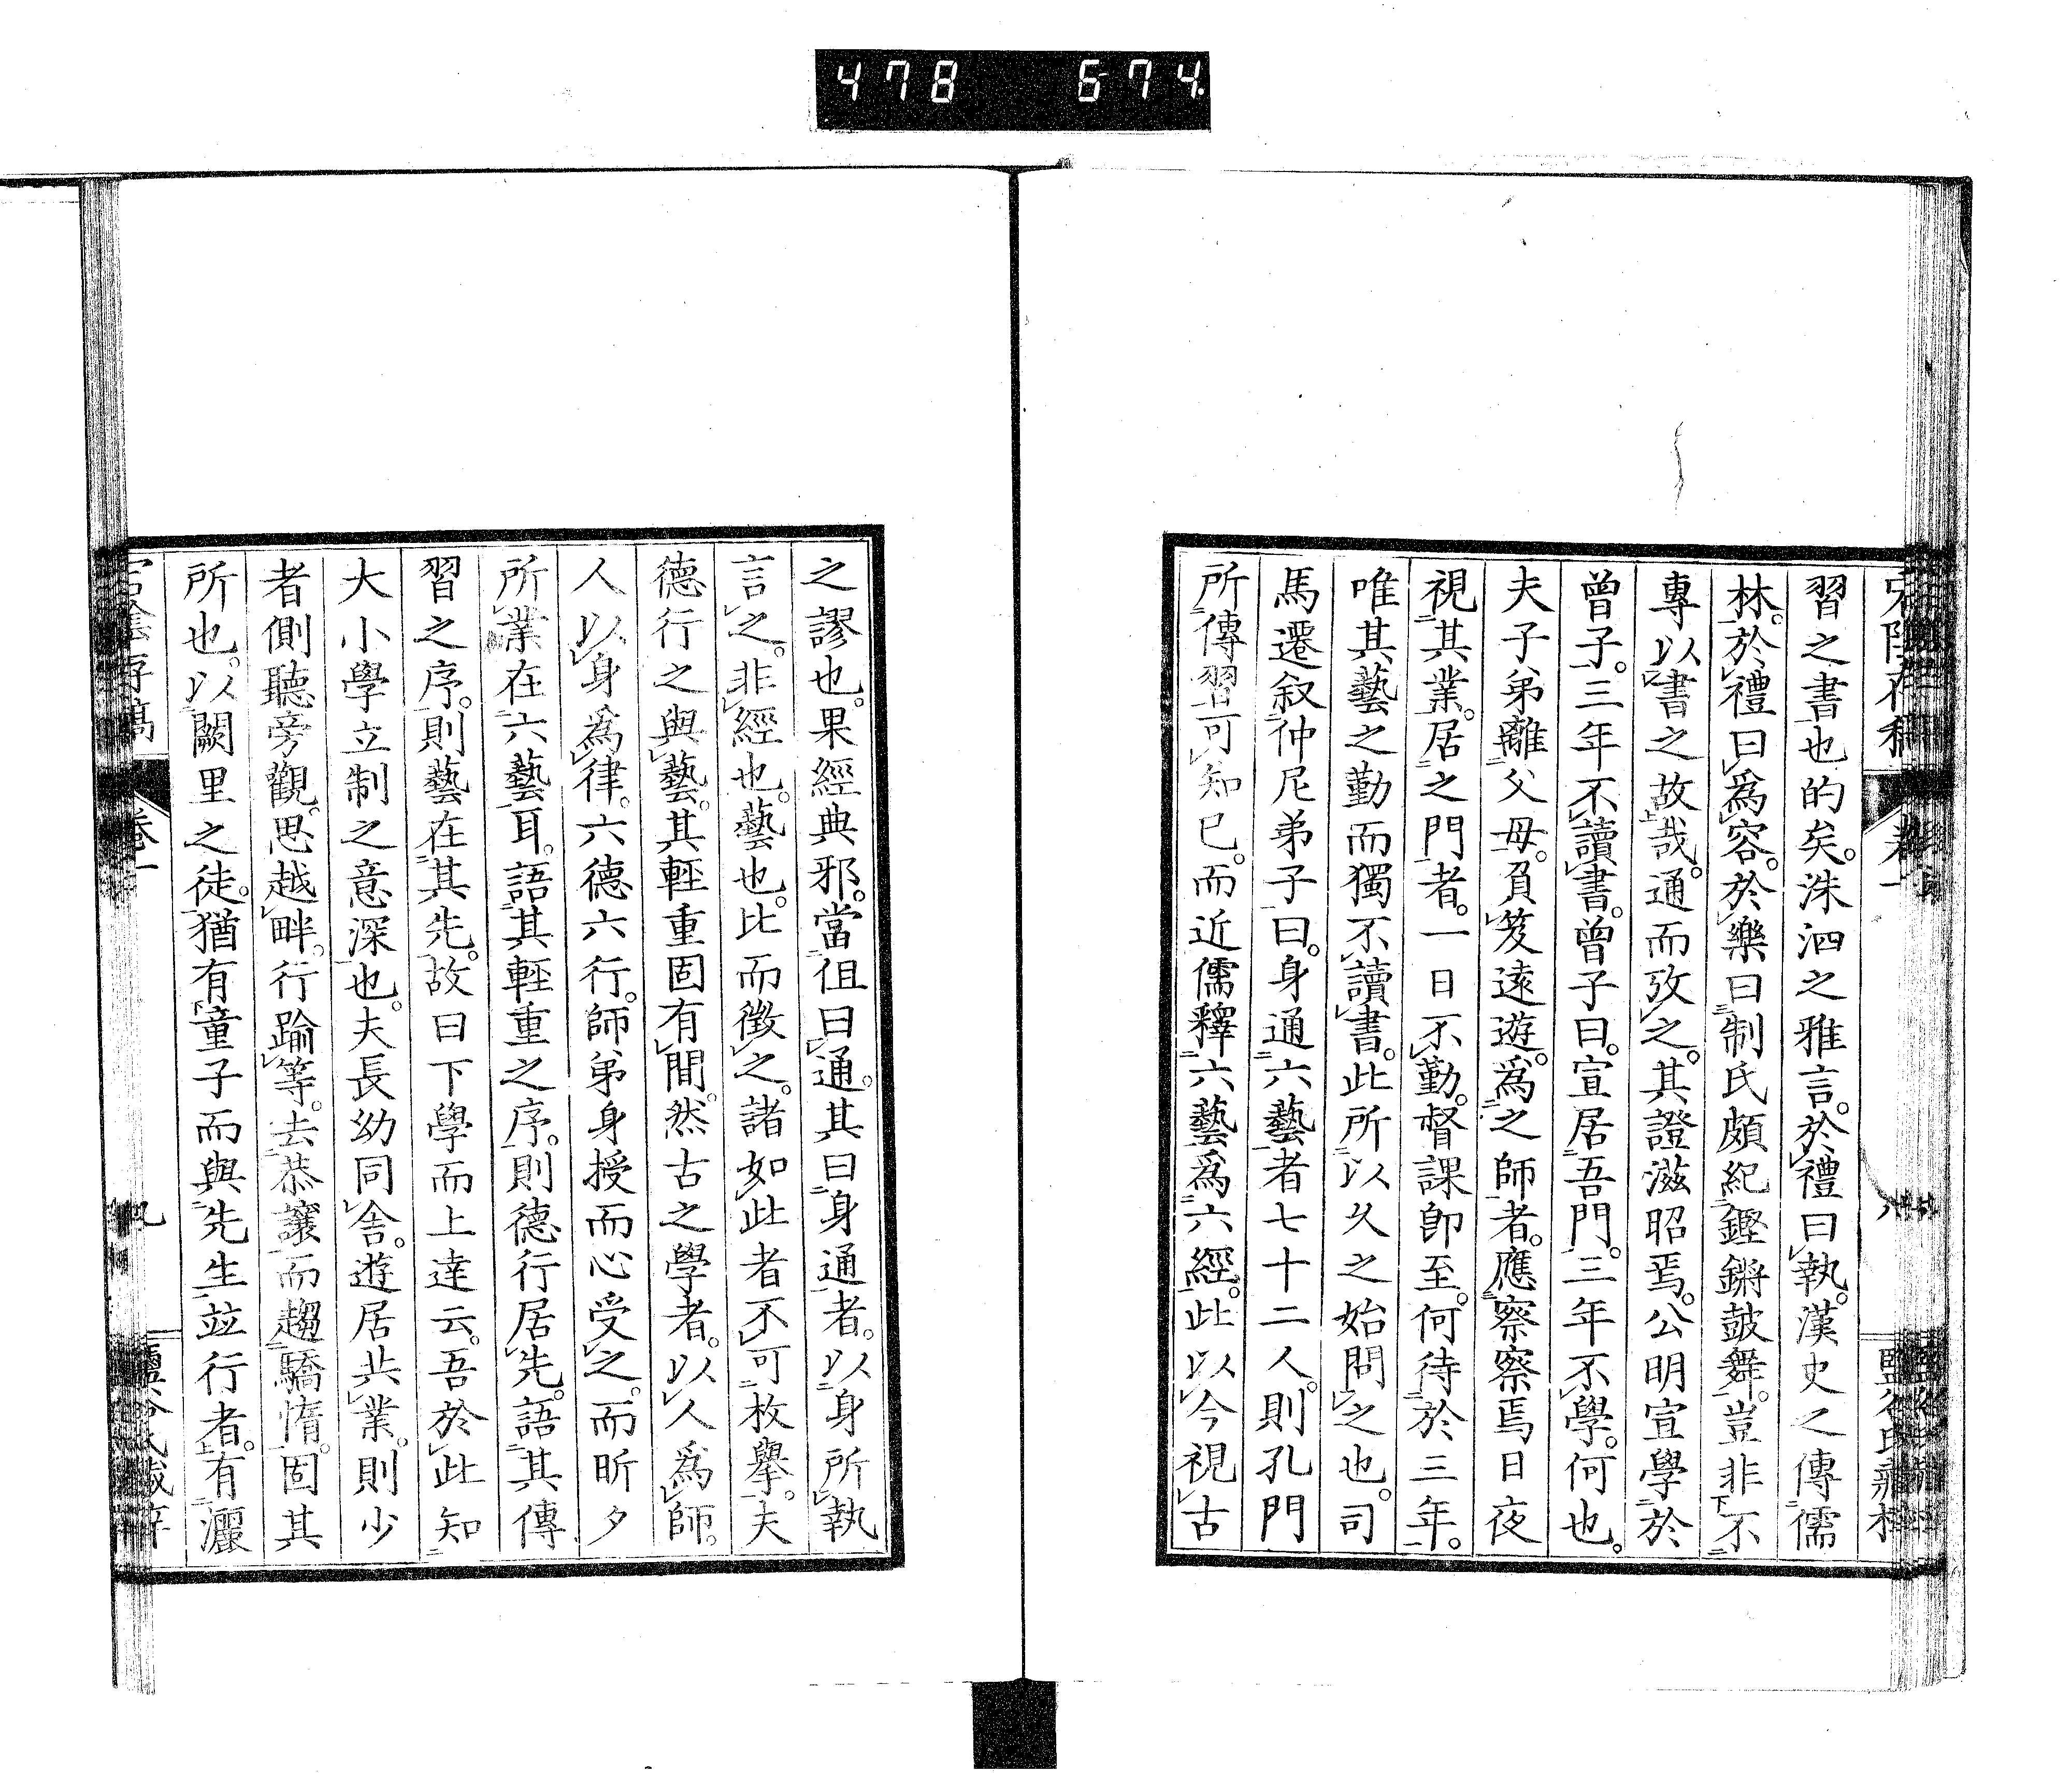 478 674.
習之書也的矣。洙泗之雅言。於禮曰執。漢史之傳儒
林。於禮曰爲容。於樂曰制氏頗紀鏗鏘鼓舞。豈非不
專以書之故哉。通而攷之。其證滋昭焉。公明宣學於
曾子。三年不讀書。曾子曰。宣居吾門。三年不學。何也。
夫子弟離父母。負笈遠遊。爲之師者。應察察焉日夜
視其業。居之門者。一日不勤。督課卽至。何待於三年。
唯其藝之勤而獨不讀書。此所以久之始問之也。司
馬遷叙仲尼弟子曰。身通六藝者七十二人。則孔門
所傳習可知已。而近儒釋六藝爲六經。此以今視古
之謬也。果經典邪。當徂曰通。其曰身通者。以身所執
言之。非經也。藝也。比而徵之。諸如此者不可枚擧。夫
德行之與藝。其輕重固有間。然古之學者。以人爲師。
人以身爲律。六德六行。師弟身授而心受之。而昕夕
所業在六藝耳。語其輕重之序。則德行居先。語其傳
習之序。則藝在其先。故曰下學而上達云。吾於此知
大小學立制之意深也。夫長幼同舍。遊居共業。則少
者側聽旁觀。思越畔。行踰等。去恭讓而趨驕惰。固其
所也。以闕里之徒。猶有童子而與先生竝行者。有灑
卷一